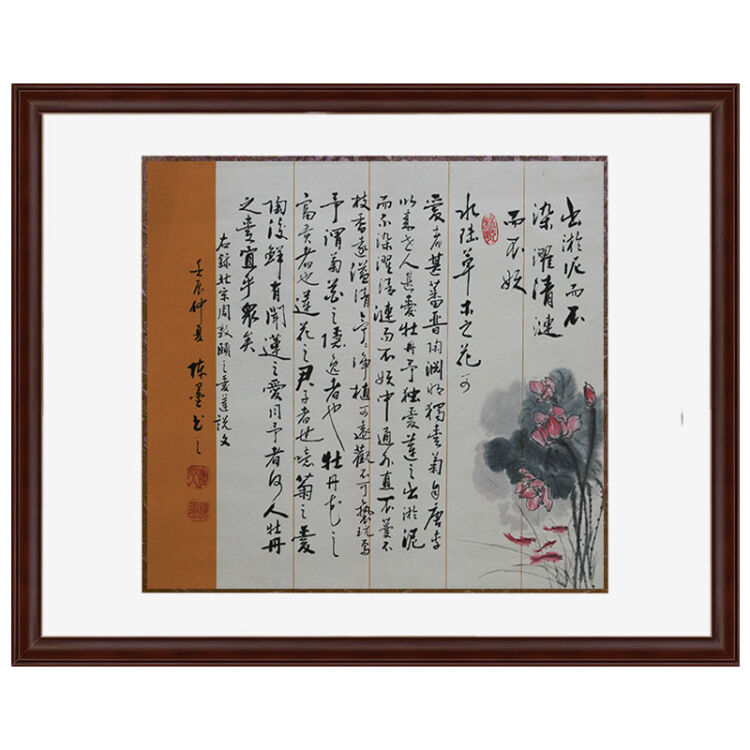 出淤泥而不
染濯清漣
而不妖
水陸草木之花可
愛者甚蕃晋陶渊明獨爱菊自唐李
以来世人甚愛牡丹予独愛蓮之出淤泥
而不染濯清漣而不妖中通外直不蔓不
枝香遠溢清亭〻淨植可遠觀不可褻玩焉
予謂菊花之隐逸者也牡丹花之
富贵者也蓮花之君子者也噫菊之爱
陶後鮮有聞蓮之愛同予者何人牡丹
之爱宜乎衆矣
右錄北宋周敦頤之爱蓮説文
壬辰仲夏 陈墨书之